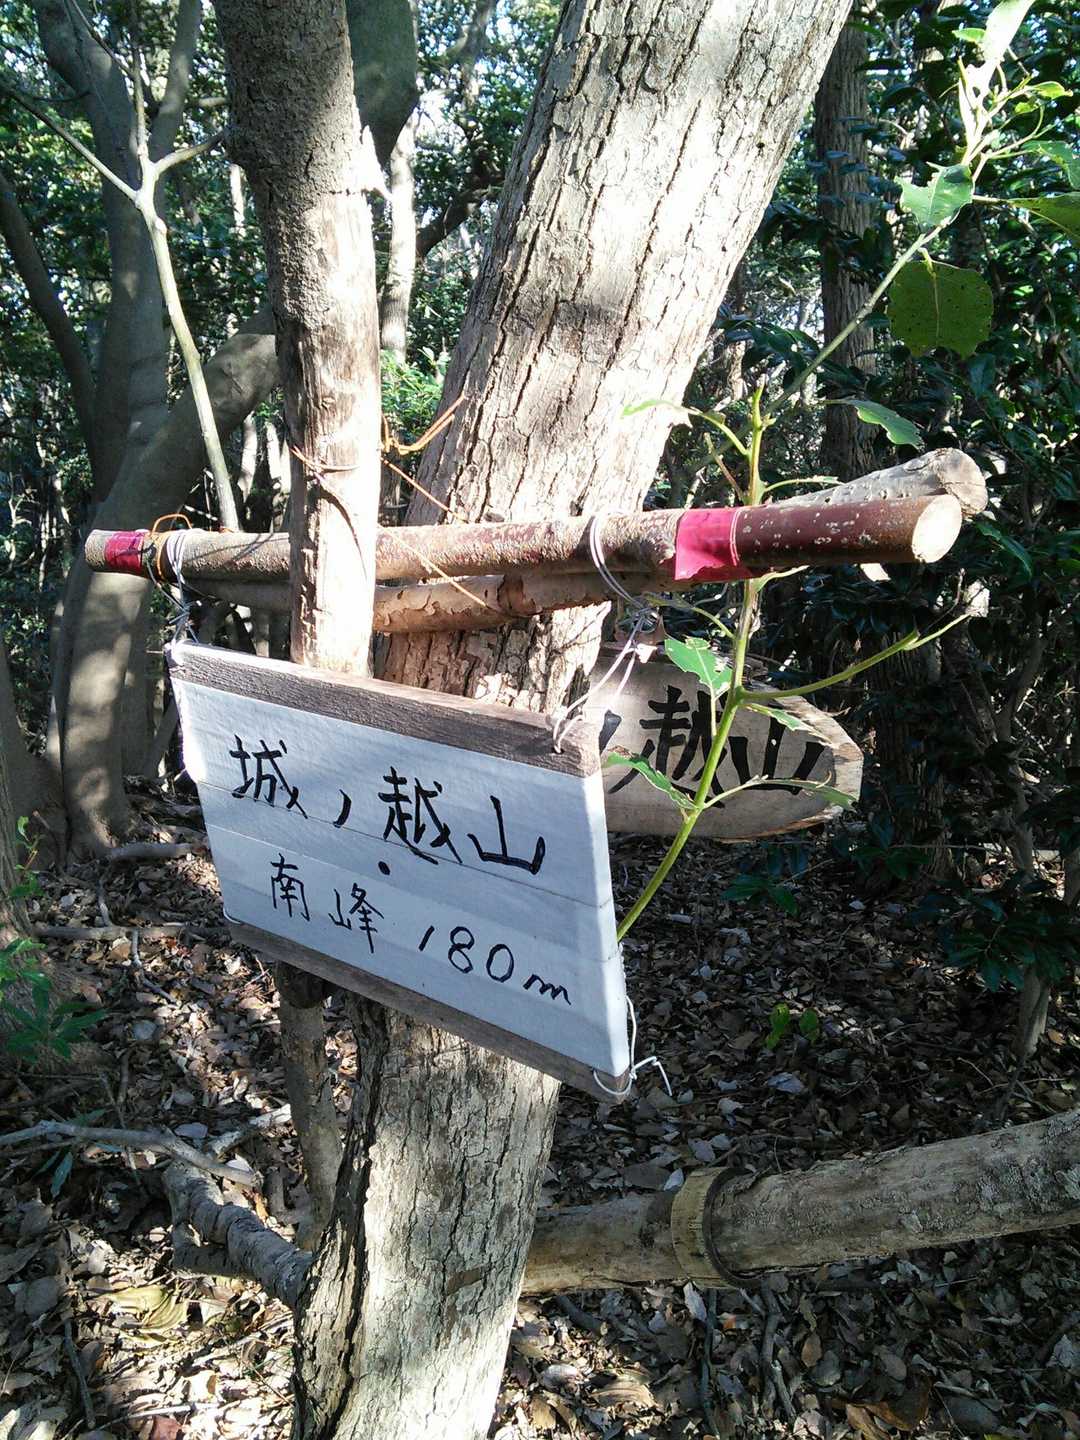 城ノ越山
・
南峰 180m
ノ越山